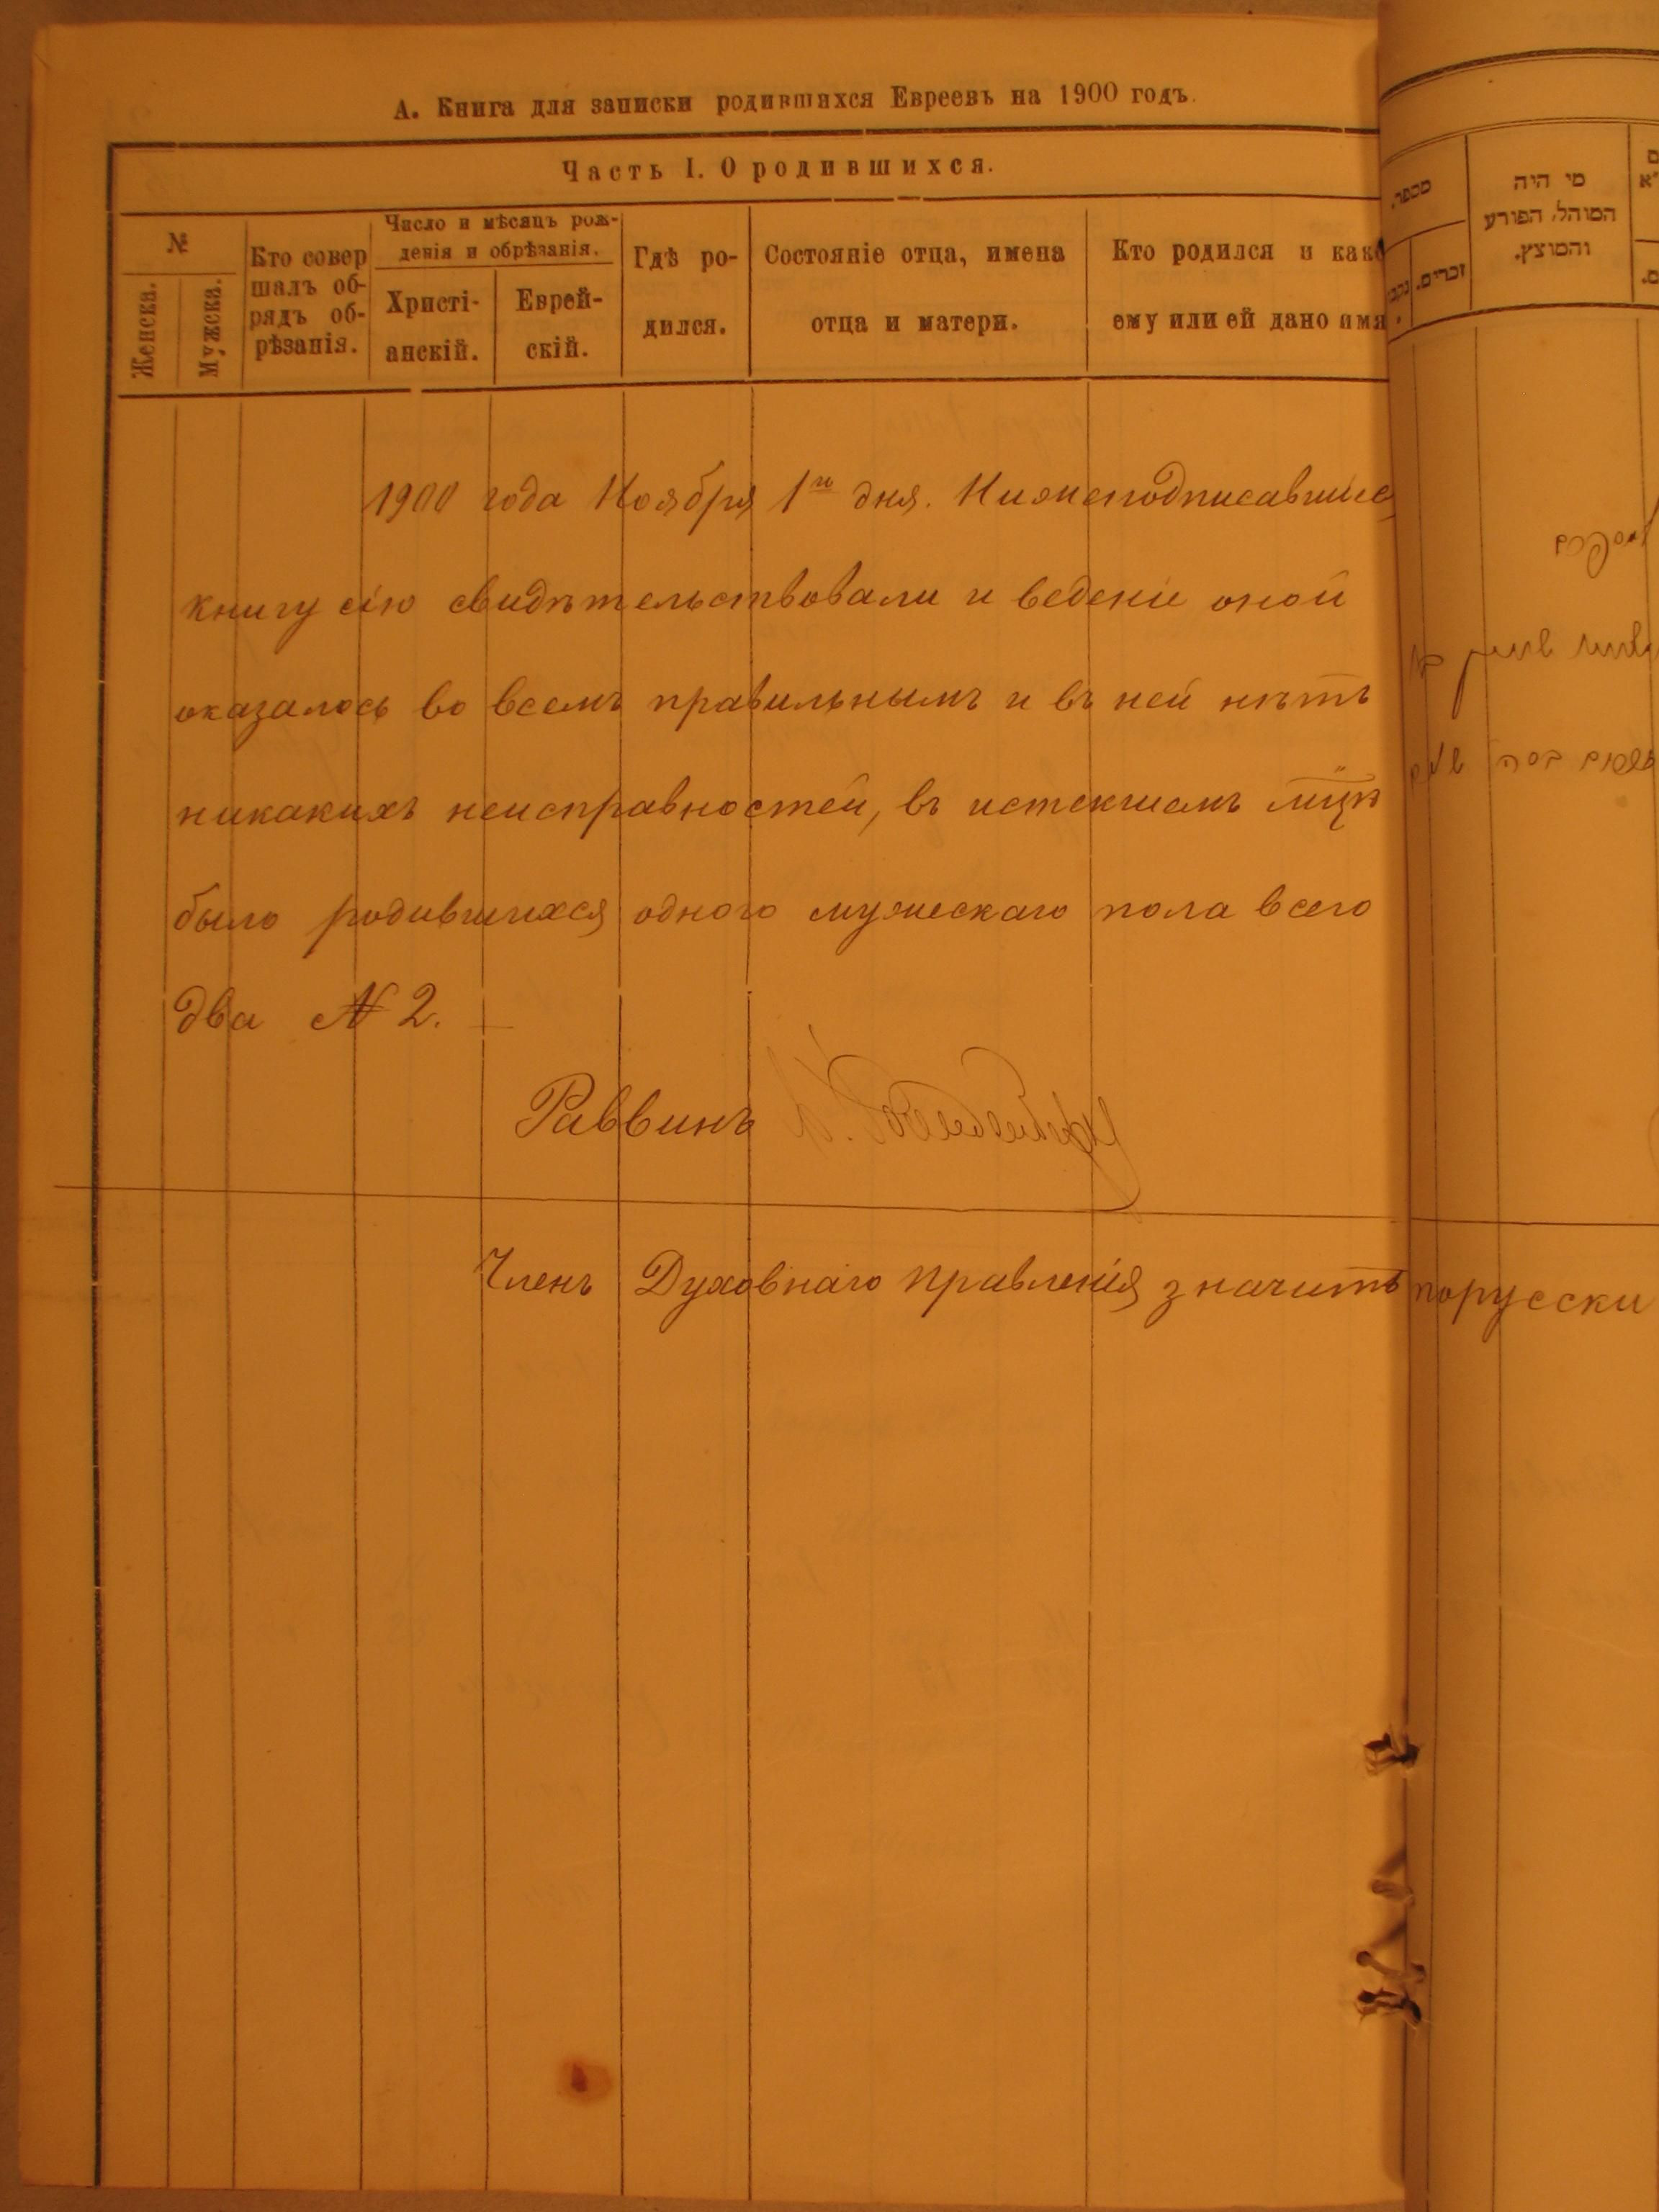 А. Книга для записки родившихся Евреевъ на 1900 годъ.
Часть I. О родившихся.
№
Женска.
Мужска.
Кто совер
шалъ об-
рядъ об-
рѣзанія.
Число и мѣсяцъ рож-
денія и обрѣзанія.
Христі-
анскій.
Еврей-
скій.
Гдѣ ро-
дился.
Состояніе отца, имена
отца и матери.
Кто родился и како
ему или ей дано имя
1900 года Ноября 1го дня. Нижеподписавшіес
книгу сію свидѣтельствовали и веденіе оной
оказалось во всемъ правильнымъ и въ ней нѣтъ
никакихъ неисправностей, въ истекшемъ мцѣ
было родившихся одного мужескаго пола всего
два № 2.
Раввинъ
Членъ Духовнаго правленія значитъ порусски
מספר.
זכרים.
מי היה
המוהל, הפורע
והמוצץ.